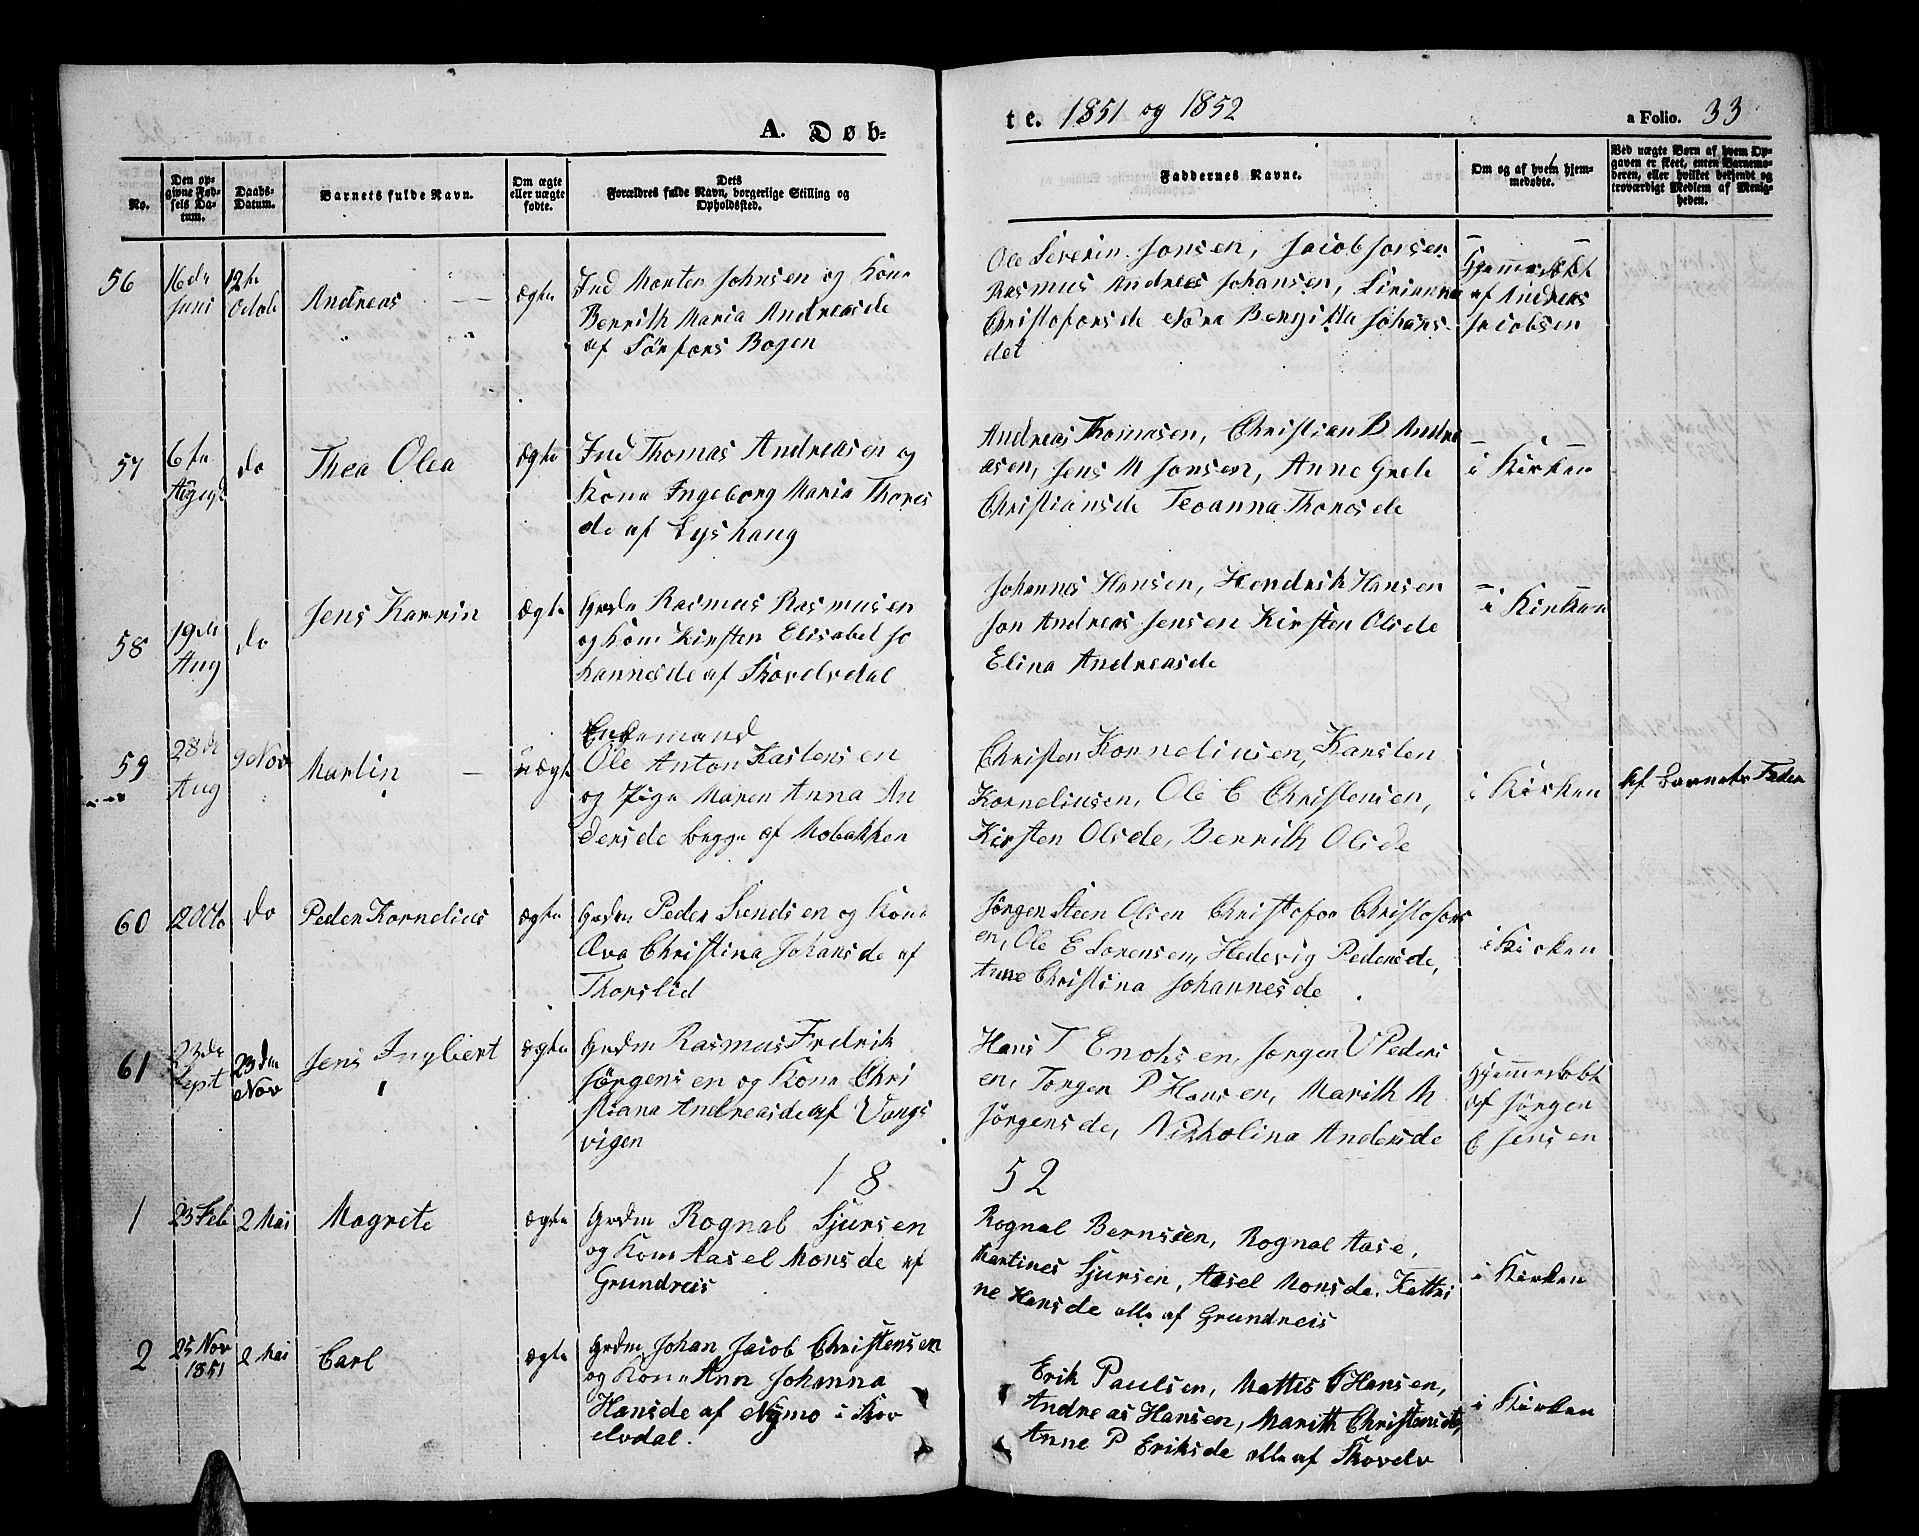 A. Døb-
te. 1851 og 1852
a Folio. 33
No.
Den op-
givne Fød-
sels Da-
tum.
Daabs-
Datum.
Barnets fulde Navn.
Om ægte
eller uægte
fødte.
Dets
Forældres fulde Navn, borgerlige Stilling og
Opholdssted.
Faddernes Navne.
Om og af hvem hjem-
medøbte.
Ved uægte Børn af hvem Op-
gaven er skeet, enten Barnemo-
deren, eller hvilket bekjendt og
troværdigt Medlem af Menig-
heden.
56
16de
Juni
12te
Octob
Andreas
Ægte
Ind Morten Johnsen og Kone
Berrith Maria Andreasde
af Sørfors Bogen
Ole Severin Jonsen, Jacob Jonsen
Rasmus Andreas Johansen, Sirianna
Christofersde Nora Bergitta Johans-
det
Hjemmedøbt
af Andreas
Jacobsen
57
6te
August
do
Thea Olea
Ægte
Ind Thomas Andreasen og
Kone Ingeborg Maria Thores
de af Lyshaug
Andreas Thomasen, Christian D Andre
asen, Jens M Jonsen, Anne Grete
Christiansde Teoanna Thoresde
i Kirken
58
19de
Aug
do
Jens Karrin
Ægte
Grdm Rasmus Rasmusen
og Kone Kirsten Elisabet Jo
hannesde af Skovelvdal
Johannes Hansen, Hendrik Hansen
Jon Andreas Jensen Kirsten Olsde
Elina Andreasde
i Kirken
59
28de
Aug
9 Nov
Martin
uægte
Enkemand
Ole Anton Kastensen
og Pige Maren Anna An
dersde begge af Mobakken
Christen Kornelius​en, Karsten
Korneliusen, Ole C Christensen,
Kirsten Olsde, Berrith Olsde
i Kirken
Af Barnets Fader
60
12 Octo
do
Peder Kornelius
Ægte
Grdm Peder Svendsen og Kone
Æva Christina Johansde af
Thorslid
Jørgen Steen Olsen Christofer Christofers
en, Ole E Sorensen, Hedevig Pedersde,
Anne Christina Johannesde
i Kirken
61
23de
Sept
23de
Nov
Jens Ingbert
Ægte
Grdm Rasmus Fredrik
Jørgensen og Kone Chri
stiana Andreasde af Vangs
vigen
Hans T Enoksen, Jørgen V Peders
en, Torger P Hansen, Marith M
Jørgensde, Nikkolina Andersde
Hjemmedøbt
af Jørgen
E Jensen
18
52
1
23 Feb
2 Mai
Magrete
Ægte
Grdm Rognal Sjursen
og Kone Aasel Monsde af
Grundreis
Rognal Bernsen, Rognal Aase,
Martines Sjursen, Aasel Monsde, Kattri
ne Hansde alle af Grundreis
i Kirken
2
25 Nov
1851
2 Mai
Carl
Ægte
Grdm Johan Jacob Christensen
og Kone Ann Johanna
Hansde af Nymo i Skov
elvdal.
Erik Paulsen, Mattis O Hansen,
Andreas Hansen, Marith Christensde,
Anne P Eriksde alle af Skovelv
i Kirken